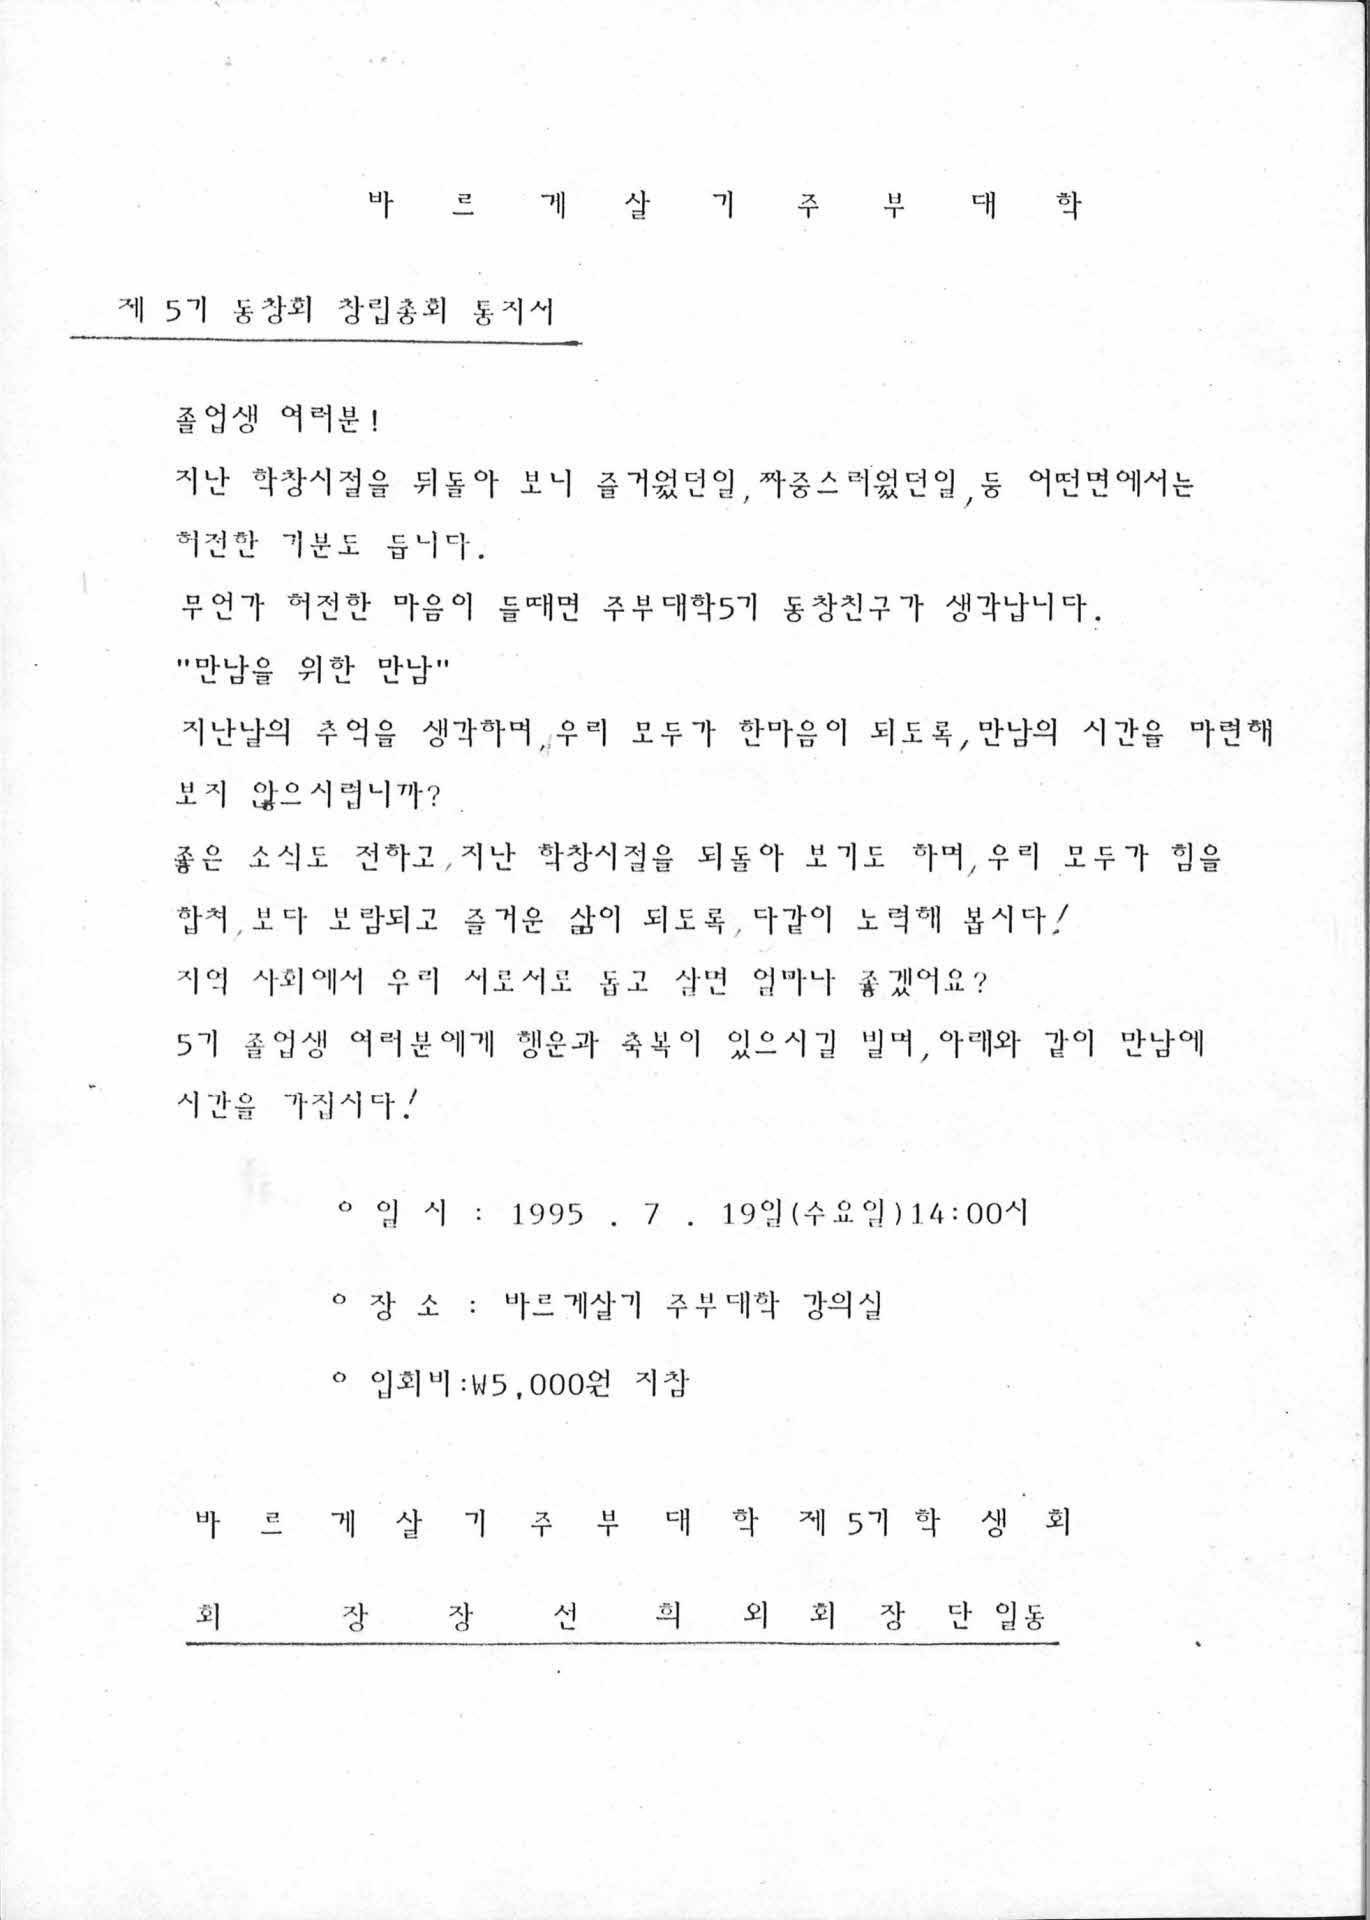 바 르 게 살 기 주 부 대 학
제 5기 동창회 창립총회 통지서
졸업생 여러분!
지난 학창시절을 뒤돌아 보니 즐거웠던일,짜중스러웠던일,등 어떤면에서는
허전한 기분도 듭니다.
무언가 허전한 마음이 들때면 주부대학5기 동창친구가 생각납니다.
"만남을 위한 만남"
지난날의 추억을 생각하며,우리 모두가 한마음이 되도록,만남의 시간을 마련해
보지 않으시렵니까?
좋은 소식도 전하고,지난 학창시절을 되돌아 보기도 하며,우리 모두가 힘을
합쳐,보다 보람되고 즐거운 삶이 되도록,다같이 노력해 봅시다!
지역 사회에서 우리 서로서로 돕고 살면 얼마나 좋겠어요?
5기 졸업생 여러분에게 행운과 축복이 있으시길 빌며,아래와 같이 만남에
시간을 가집시다!
ㅇ 일 시 : 1995 . 7 . 19일(수요일)14:00시
ㅇ 장 소 : 바르게살기 주부대학 강의실
ㅇ 입회비:₩5,000원 지참
바 르 게 살 기 주 부 대 학 제 5기 학 생 회
회 장 장 선 희 외 회 장 단 일동